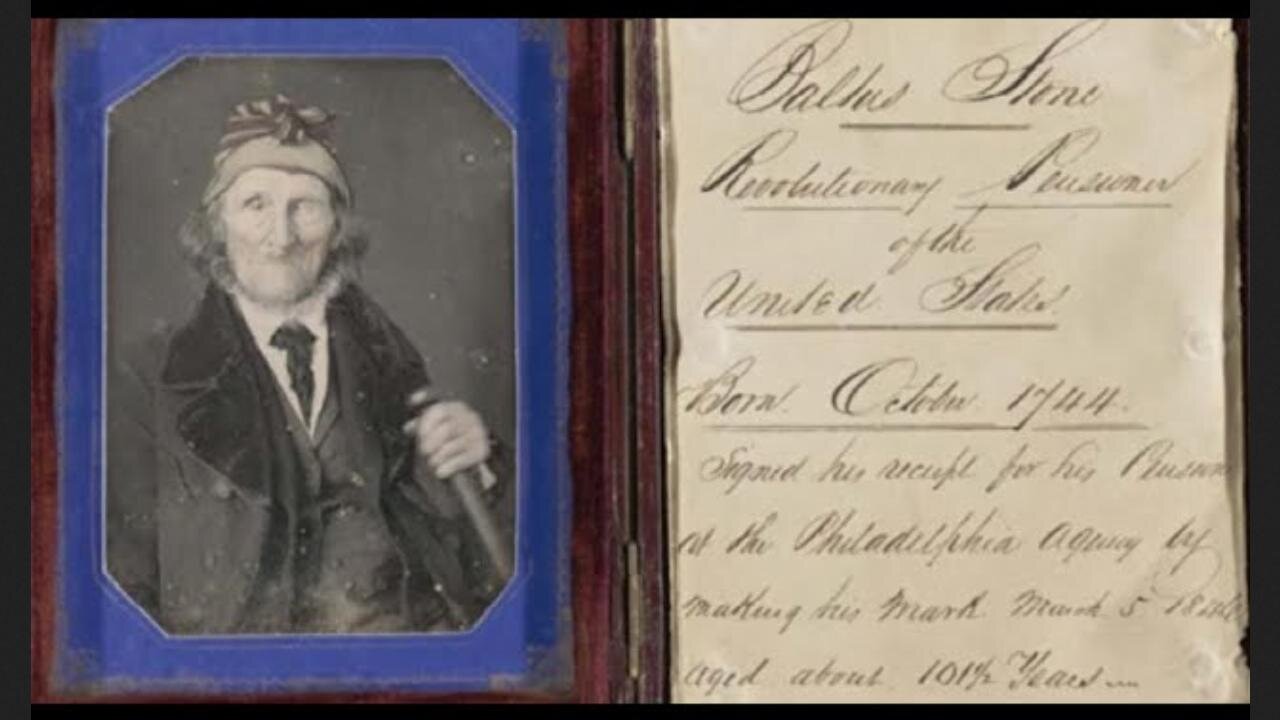 Baltus Stone
Revolutionary Pensioner
of the
United States.
Born. October 1744.
Signed his receipt for his Pension
at the Philadelphia Agency by
making his mark March 5 1846
aged about 101½ Years